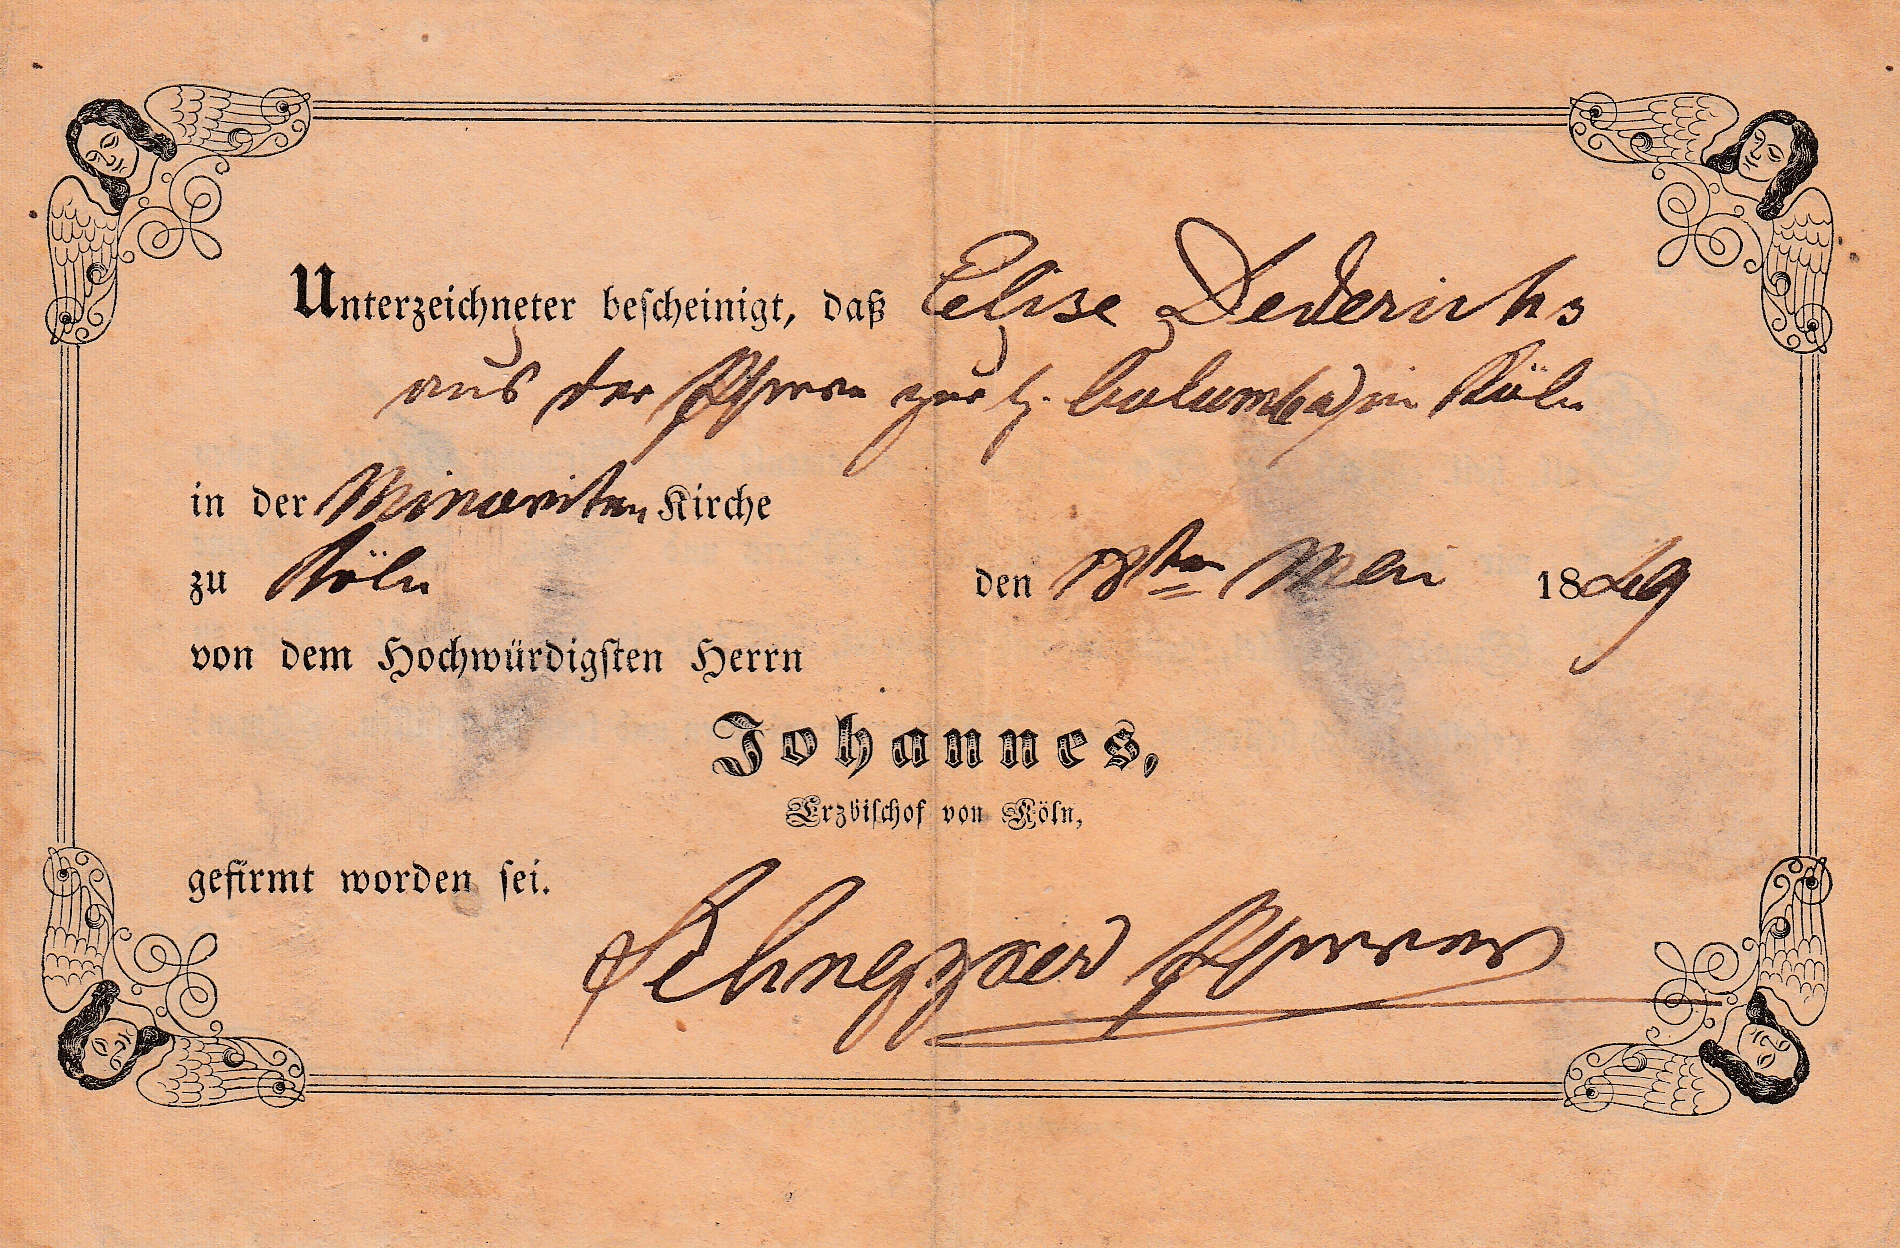 Unterzeichneter bescheinigt, daß Elise Dederichs
aus der Pfarre zur h. Columba in Köln
in der Minoriten Kirche
zu Köln den ten Mai 1849
von dem Hochwürdigsten Herrn
Johannes,
Erzbischof von Köln,
gefirmt worden sei.
Schnepper Pfarrer